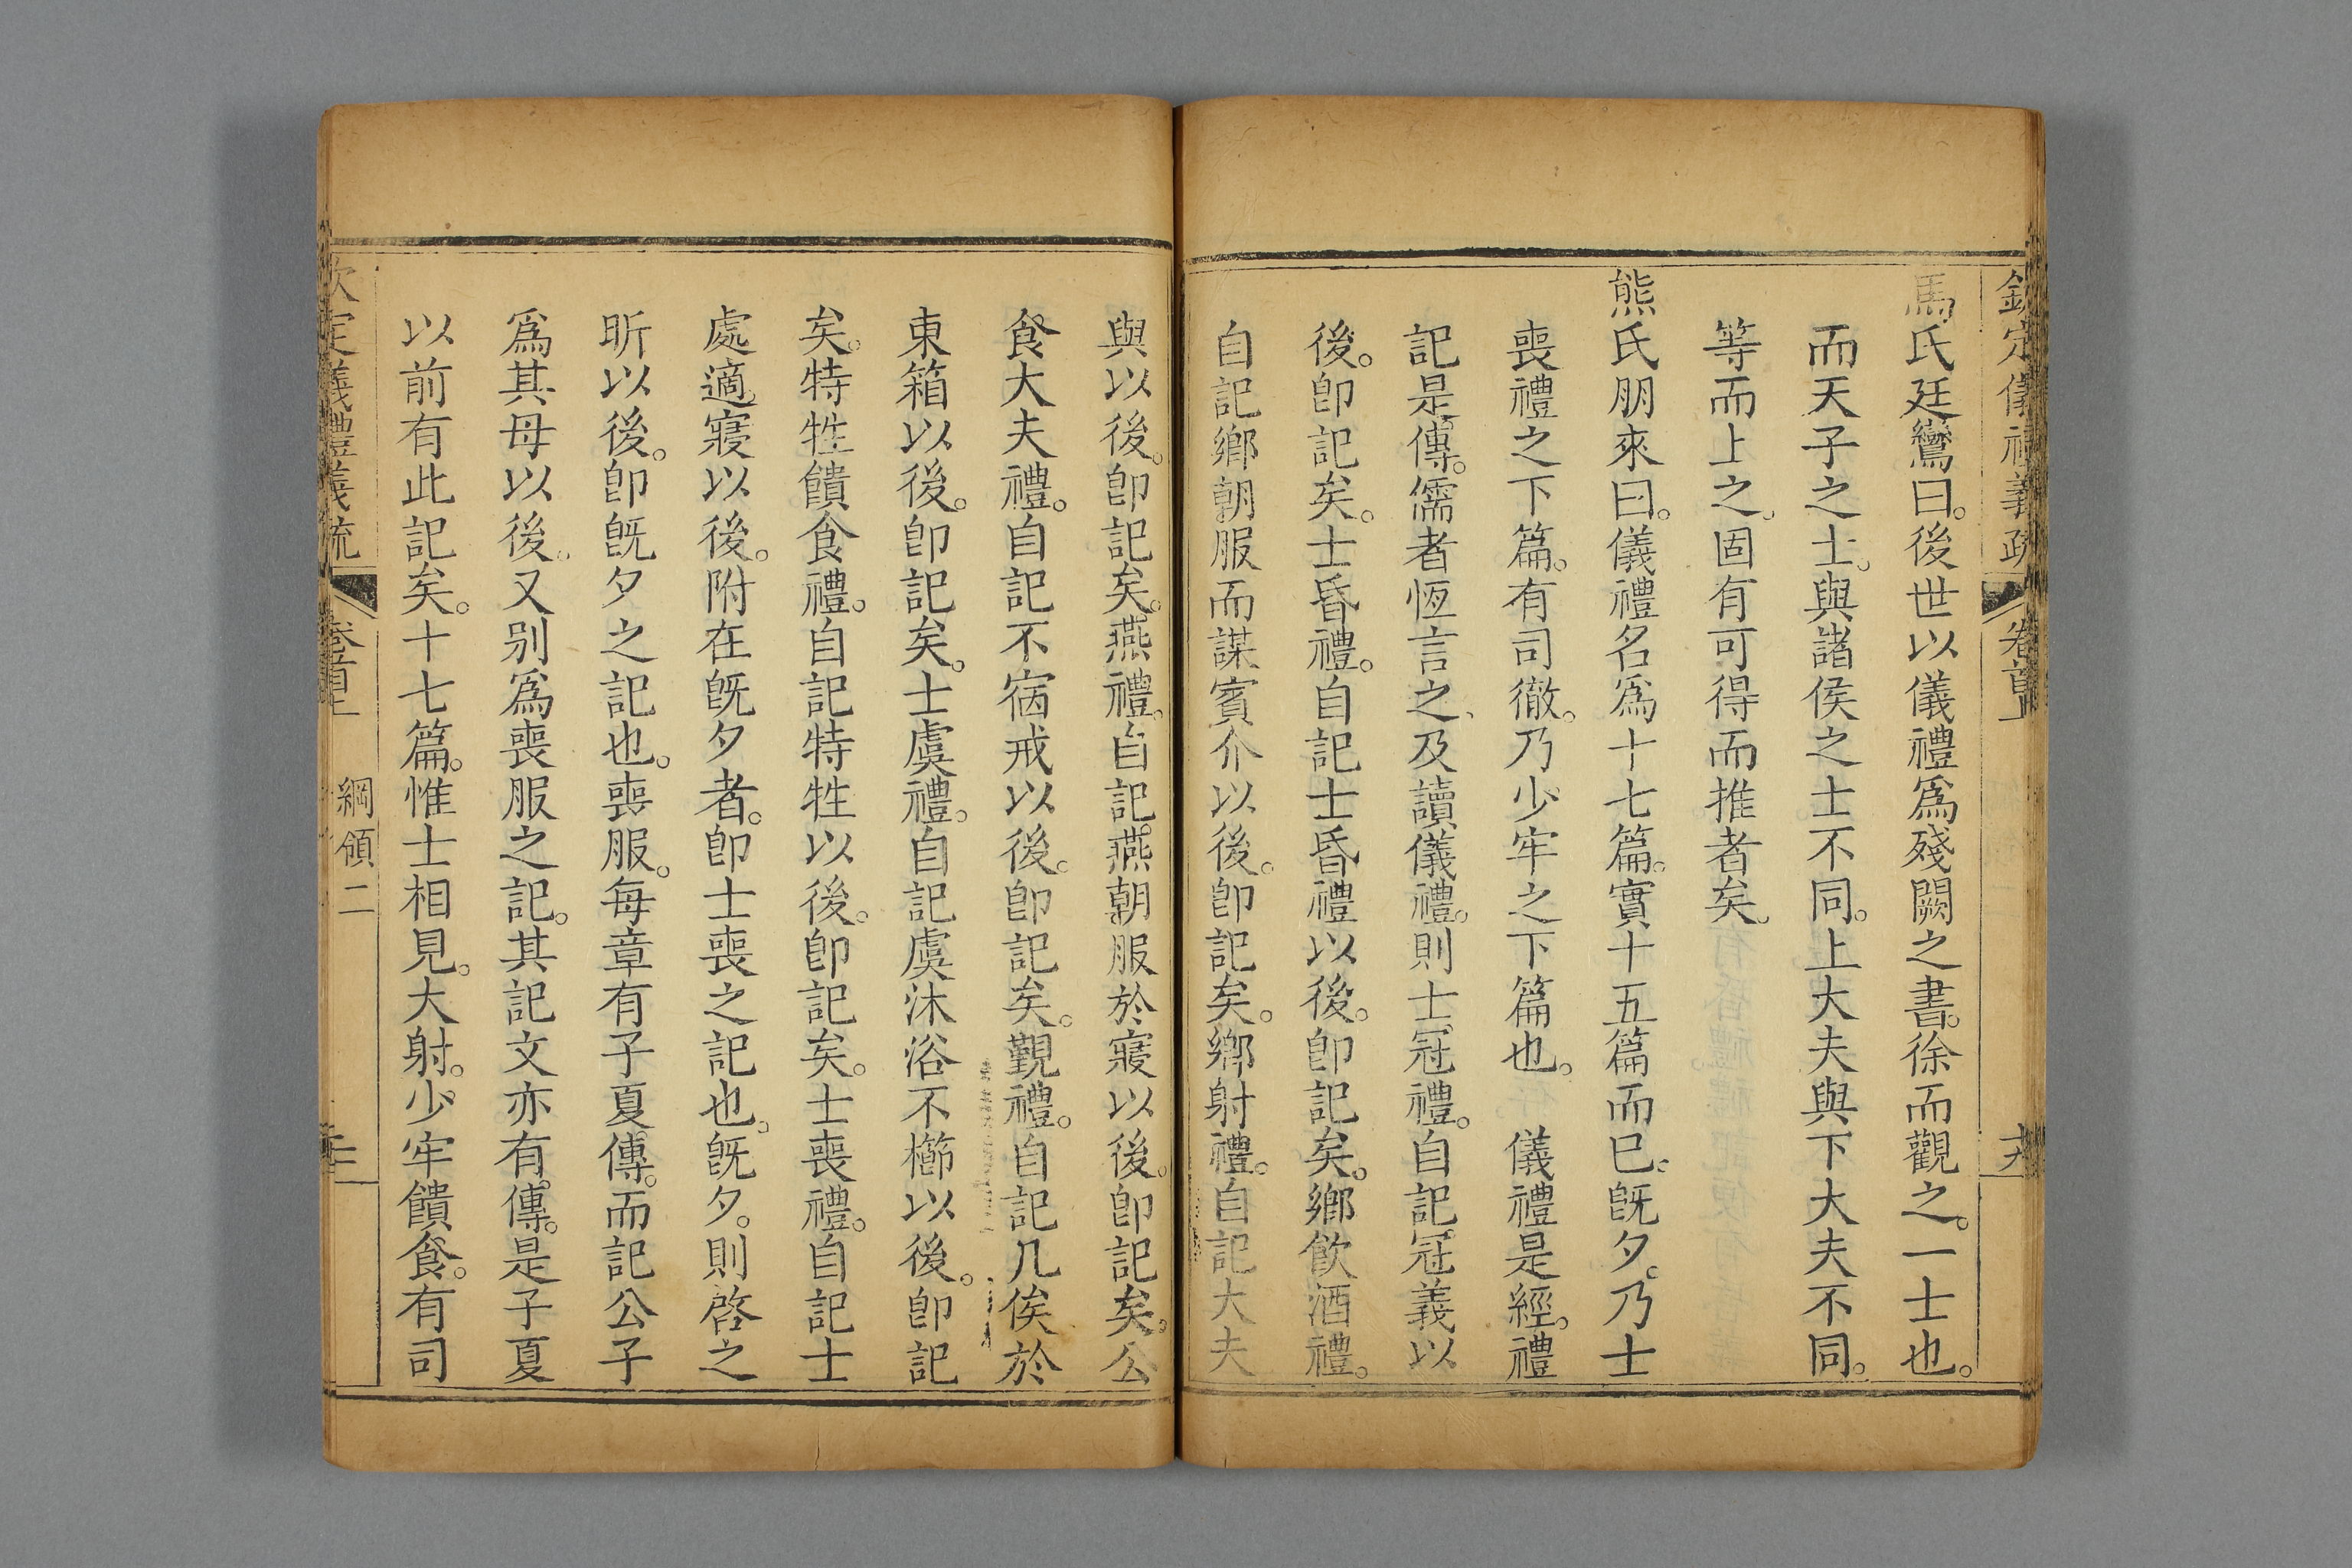 欽定儀禮義疏 卷首上
馬氏廷鸞曰。後世以儀禮爲殘闕之書。徐而觀之。一士也。
而天子之士。與諸侯之士不同。上大夫與下大夫不同。
等而上之。固有可得而推者矣。
熊氏朋來曰。儀禮名爲十七篇。實十五篇而已。旣夕。乃士
喪禮之下篇。有司徹。乃少牢之下篇也。 儀禮是經。禮
記是傳。儒者恆言之。及讀儀禮。則士冠禮。自記冠義以
後。卽記矣。士昏禮。自記士昏禮以後。卽記矣。鄉飲酒禮。
自記鄉朝服而謀賓介以後。卽記矣。鄉射禮。自記大夫
與以後。卽記矣。燕禮。自記燕朝服於寢以後。卽記矣。公
食大夫禮。自記不宿戒以後。卽記矣。覲禮。自記几俟於
東箱以後。卽記矣。士虞禮。自記虞沐浴不櫛以後。卽記
矣。特牲饋食禮。自記特牲以後。卽記矣。士喪禮。自記士
處適寢以後。附在旣夕者。卽士喪之記也。旣夕。則啓之
昕以後。卽旣夕之記也。喪服。每章有子夏傳。而記公子
爲其母以後。又別爲喪服之記。其記文亦有傳。是子夏
以前有此記矣。十七篇。惟士相見。大射。少牢饋食。有司
欽定儀禮義疏 卷首上 綱領二